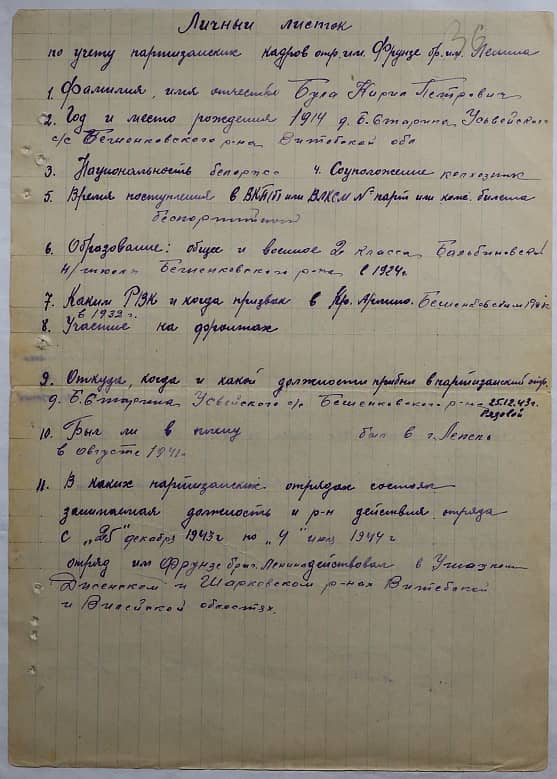 36
Личный листок
по учету партизанских кадров отр. им. Фрунзе бр. им. Ленина
1. Фамилия, имя отчество Бука Кирил Петрович
2. Год и место рождения 1914 д. Б. Старина, Усвейского
с/с Бешенковского р-на Витебской обл
3. Национальность белорус 4. Соцположение колхозник
5. Время поступления в ВКП/б или ВЛКСМ № парт или комс. билета
беспартийный
6. Образование: общее и военное 2 класса,
н/школы Бешенковского р-на в 1924г
7. Каким РВК и когда призван в Кр. Армию. Бешенковским РВК
в 1939 г.
8. Участие на фронтах
9. Откуда, когда и какой должности прибыл в партизанский отр.
д. Б. Старина Усвейского с/с Бешенковского р-на 25.12.43г.
Рядовой
10. Был ли в плену был в г. Лепель
в августе 1941г.
11. В каких партизанских отрядах состоял
занимаемая должность и р-н действия отряда
с "25" декабря 1943г по "4" июл 1944 г
отряд им Фрунзе бриг. Ленина действовал в Ушачском
Дисенском и Шарковском р-нах Витебской
и Вилейской областях.